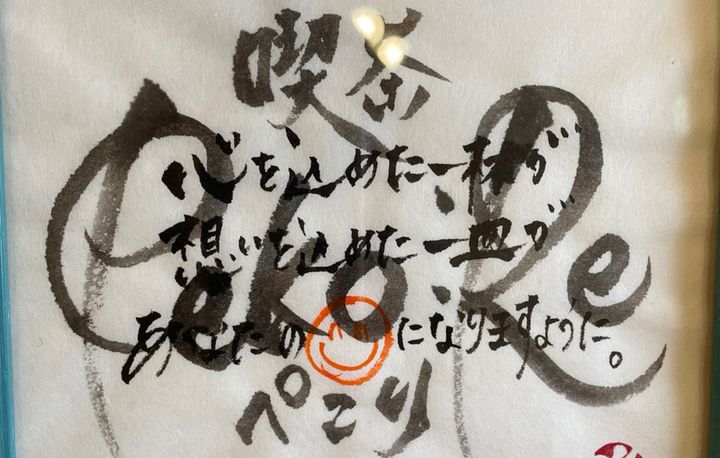 喫茶
Peko.Re
心を込めた一杯が
想いを込めた一皿が
あなたの になりますように。
ぺこり